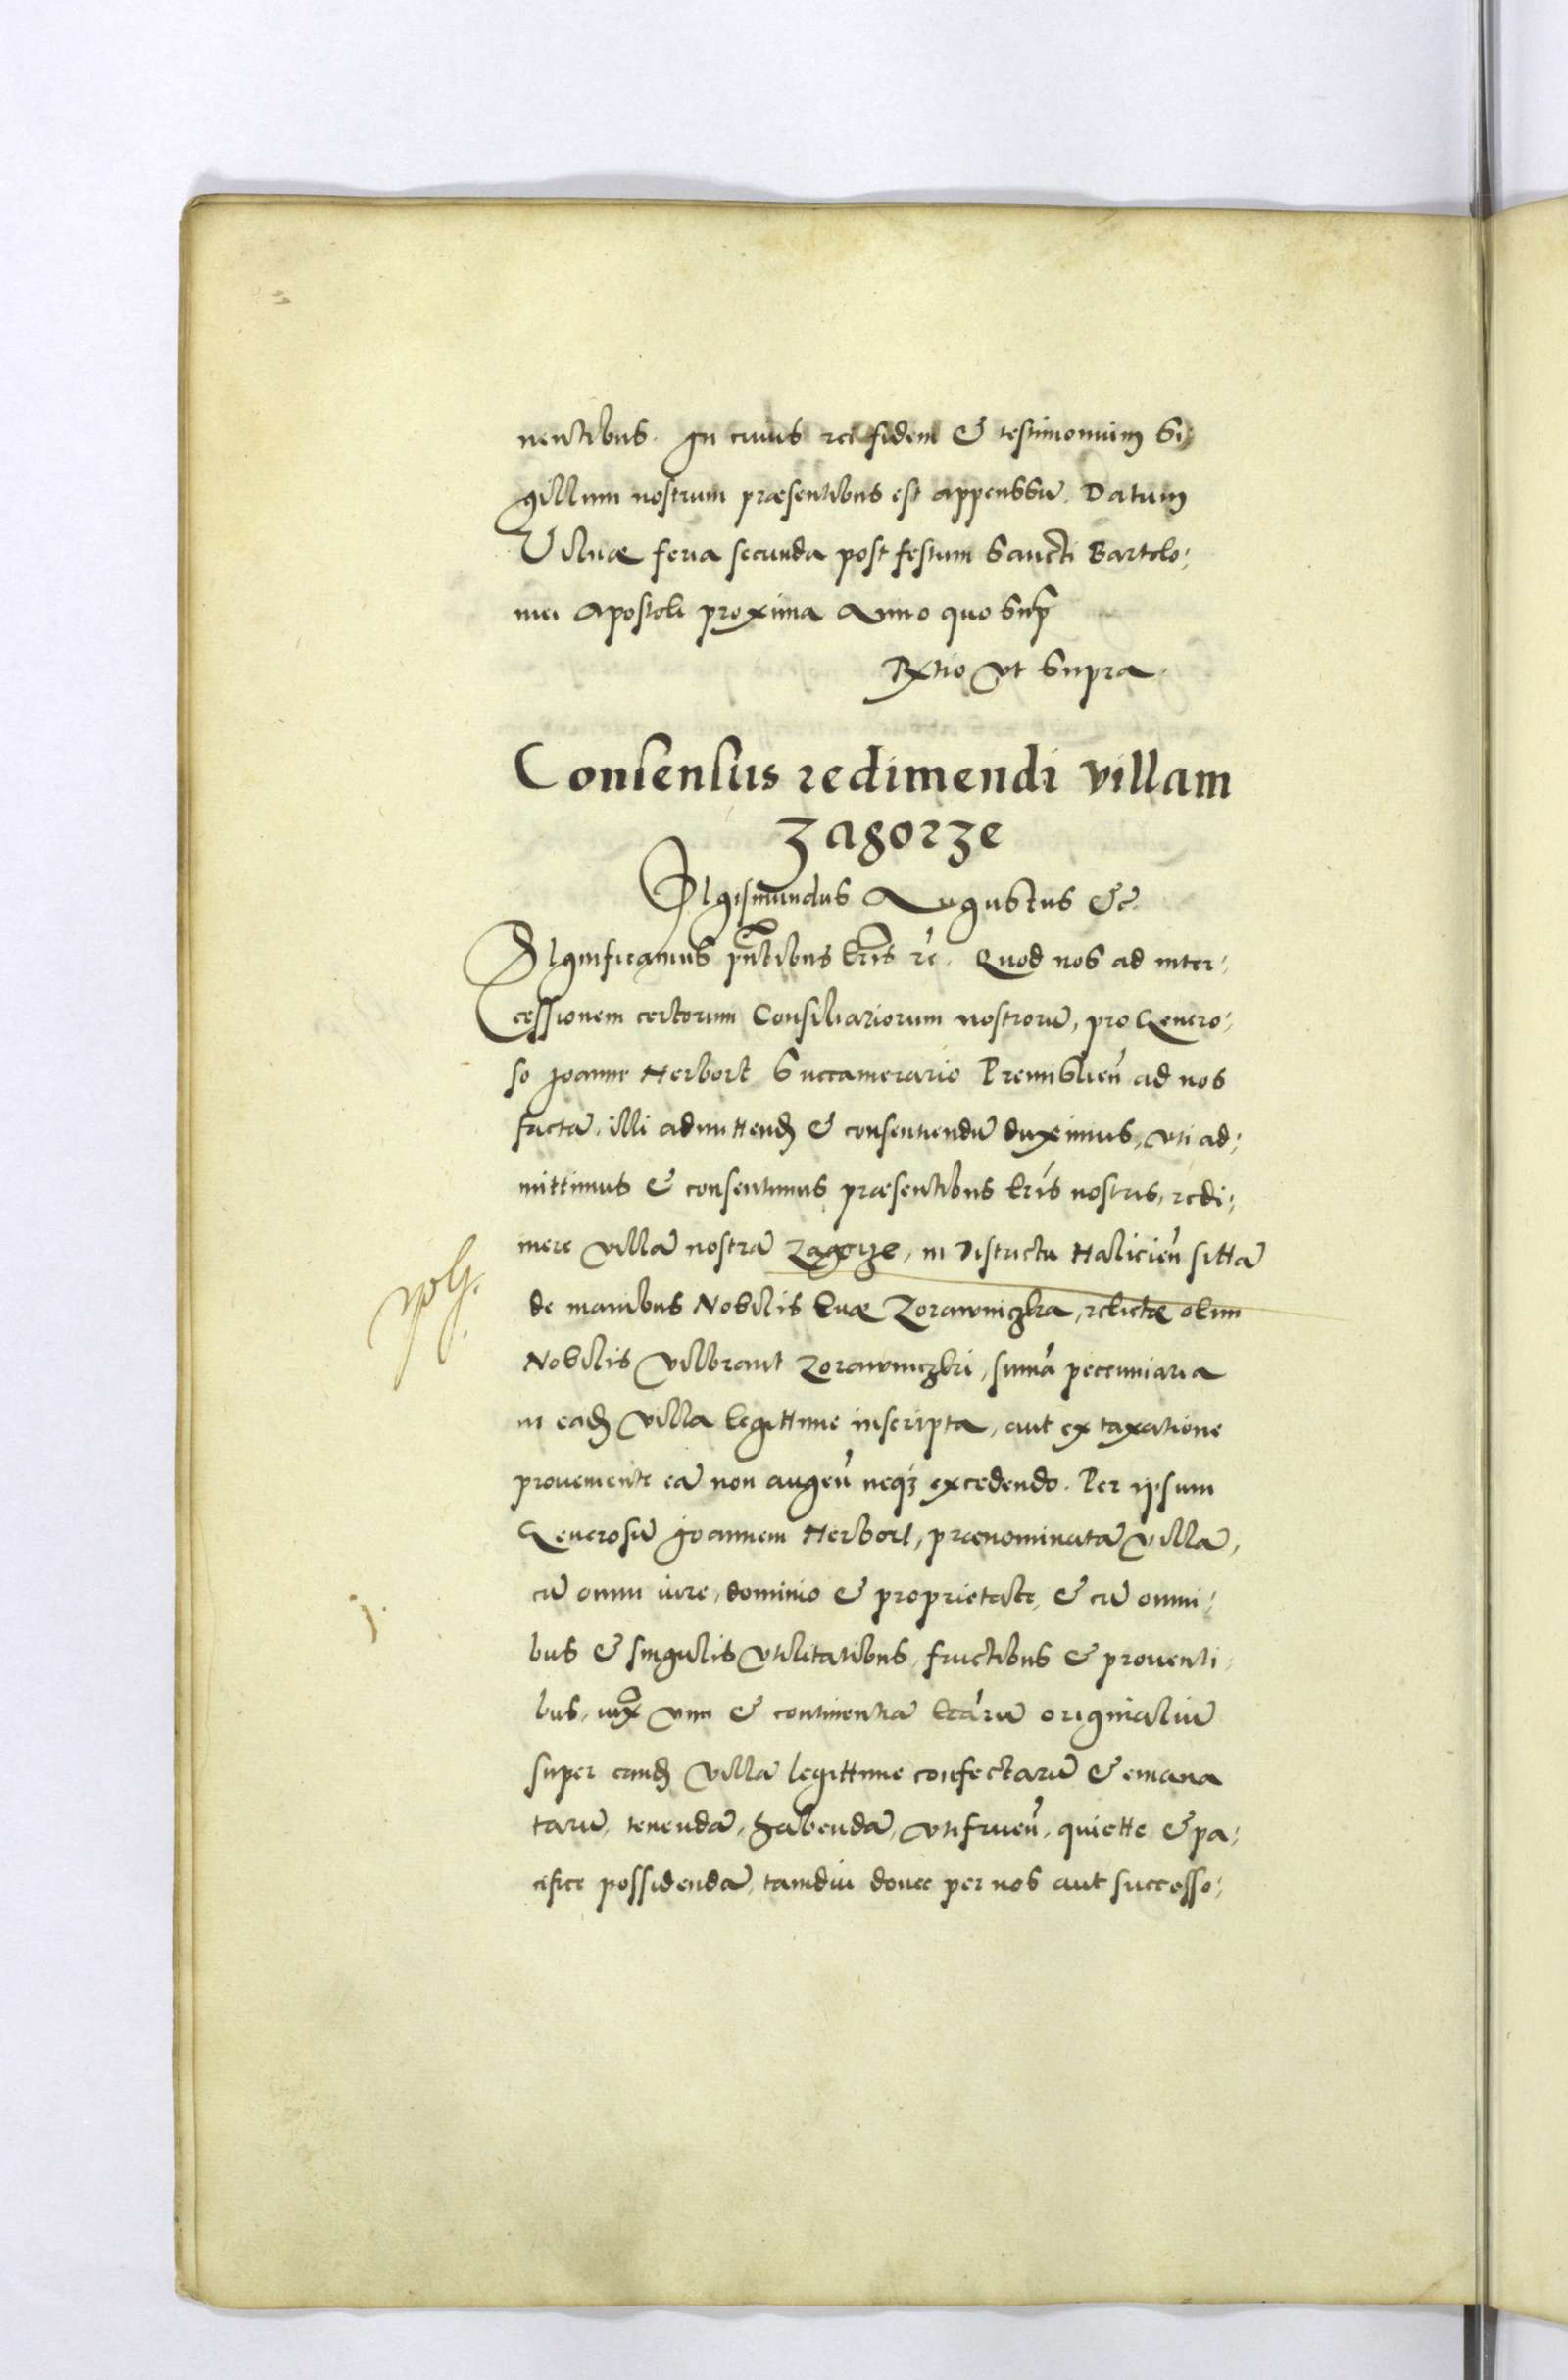 nentibus. In cuius rei fidem & testimonium Si⸗
gillum nostrum præsentibus est appenssũ. Datum
Vilnæ feria secunda post festum Sancti Bartolo⸗
mei Apostoli proxima Anno quo Supr̃
Rxtio vt Supra
Consensus redimendi villam
Zagorze
Sigismundus Augustus &c̃.
Significamus pñtibus lr̃is rc̃. Quod nos ad inter⸗
cessionem certorum Consiliariorum nostrorũ, pro Genero⸗
so Joanne Herbort Succamerario Premislien̄ ad nos
factã, illi admittend̄ & consentiendũ duximus, vti ad⸗
mittimus & consentimus præsentibus lr̃is nostris, redi⸗
mere villã nostrã Zagorze, in Districtu Halicien̄ sittã
de manibus Nobilis Euæ Zorawniczka, relictæ olim
Nobilis Vilbrant Zorawniczki, sum̃a peccuniaria
in ead̄ villa legittime inscripta, aut ex taxatione
proueniente eã non augen̄ neq3 excedendo. Per ipsum
Generosũ Joannem Herbort, prænominatã villã,
cũ omni iure, dominio & proprietate, & cũ omni⸗
bus & singulis vtilitatibus, fructibus & prouenti⸗
bus, iux̃ vim & continentiã lr̃arũ originaliũ
super eand̄ villã legittime confectarũ & emana
tarũ, tenendã, habendã, vtifruen̄, quiette & pa⸗
cifice possidendã, tamdiu donec per nos aut successo⸗